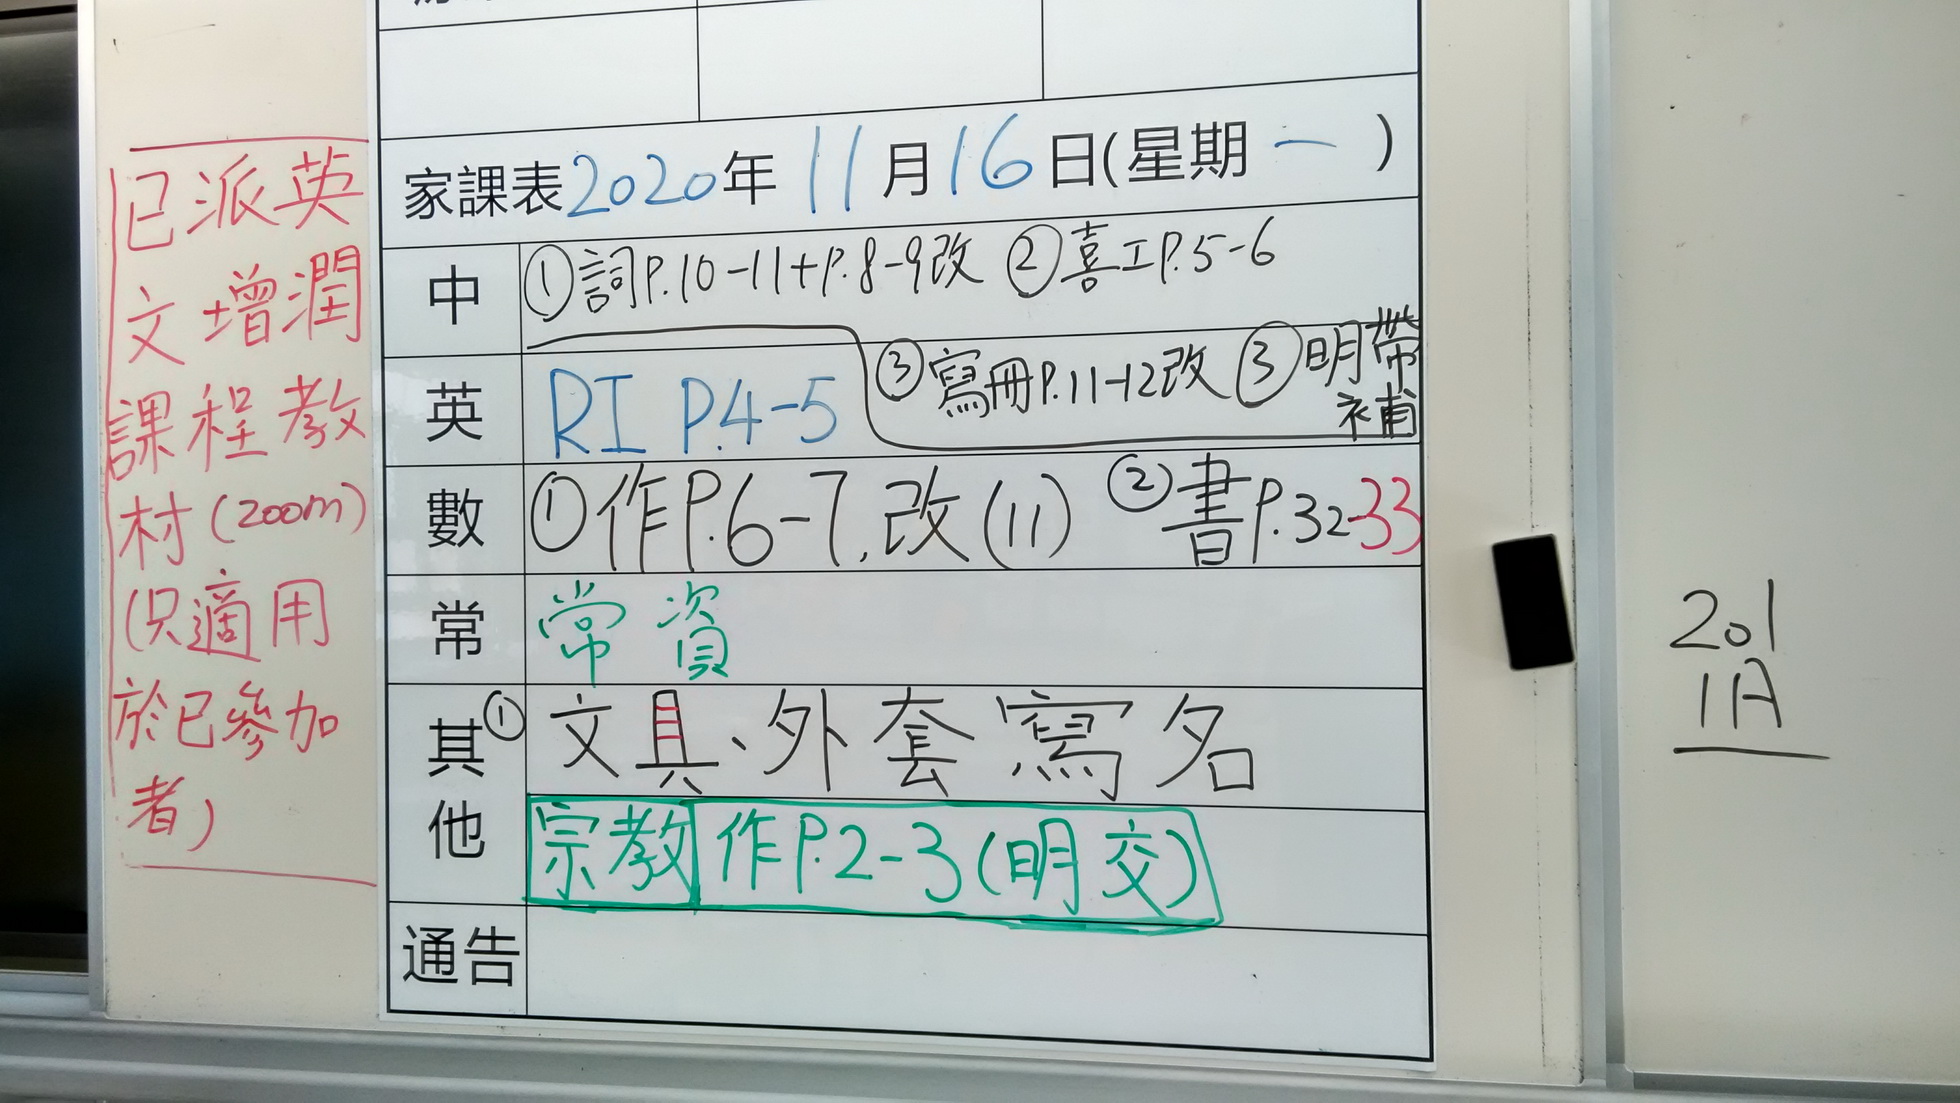 家課表2020年11月16日(星期一)
中 ①詞P.10-11+P.8-9改 ②喜工P.5-6
③寫冊P.11-12改 ③明帶補
英 RI P.4-5
數 ①作P.6-7,改(11) ②書P.32-33
常 常資
其他 ①文具、外套寫名
宗教 作P.2-3(明交)
通告
已派英
文增潤
課程教
材(zoom)
(只適用
於已參加
者)
201
1A